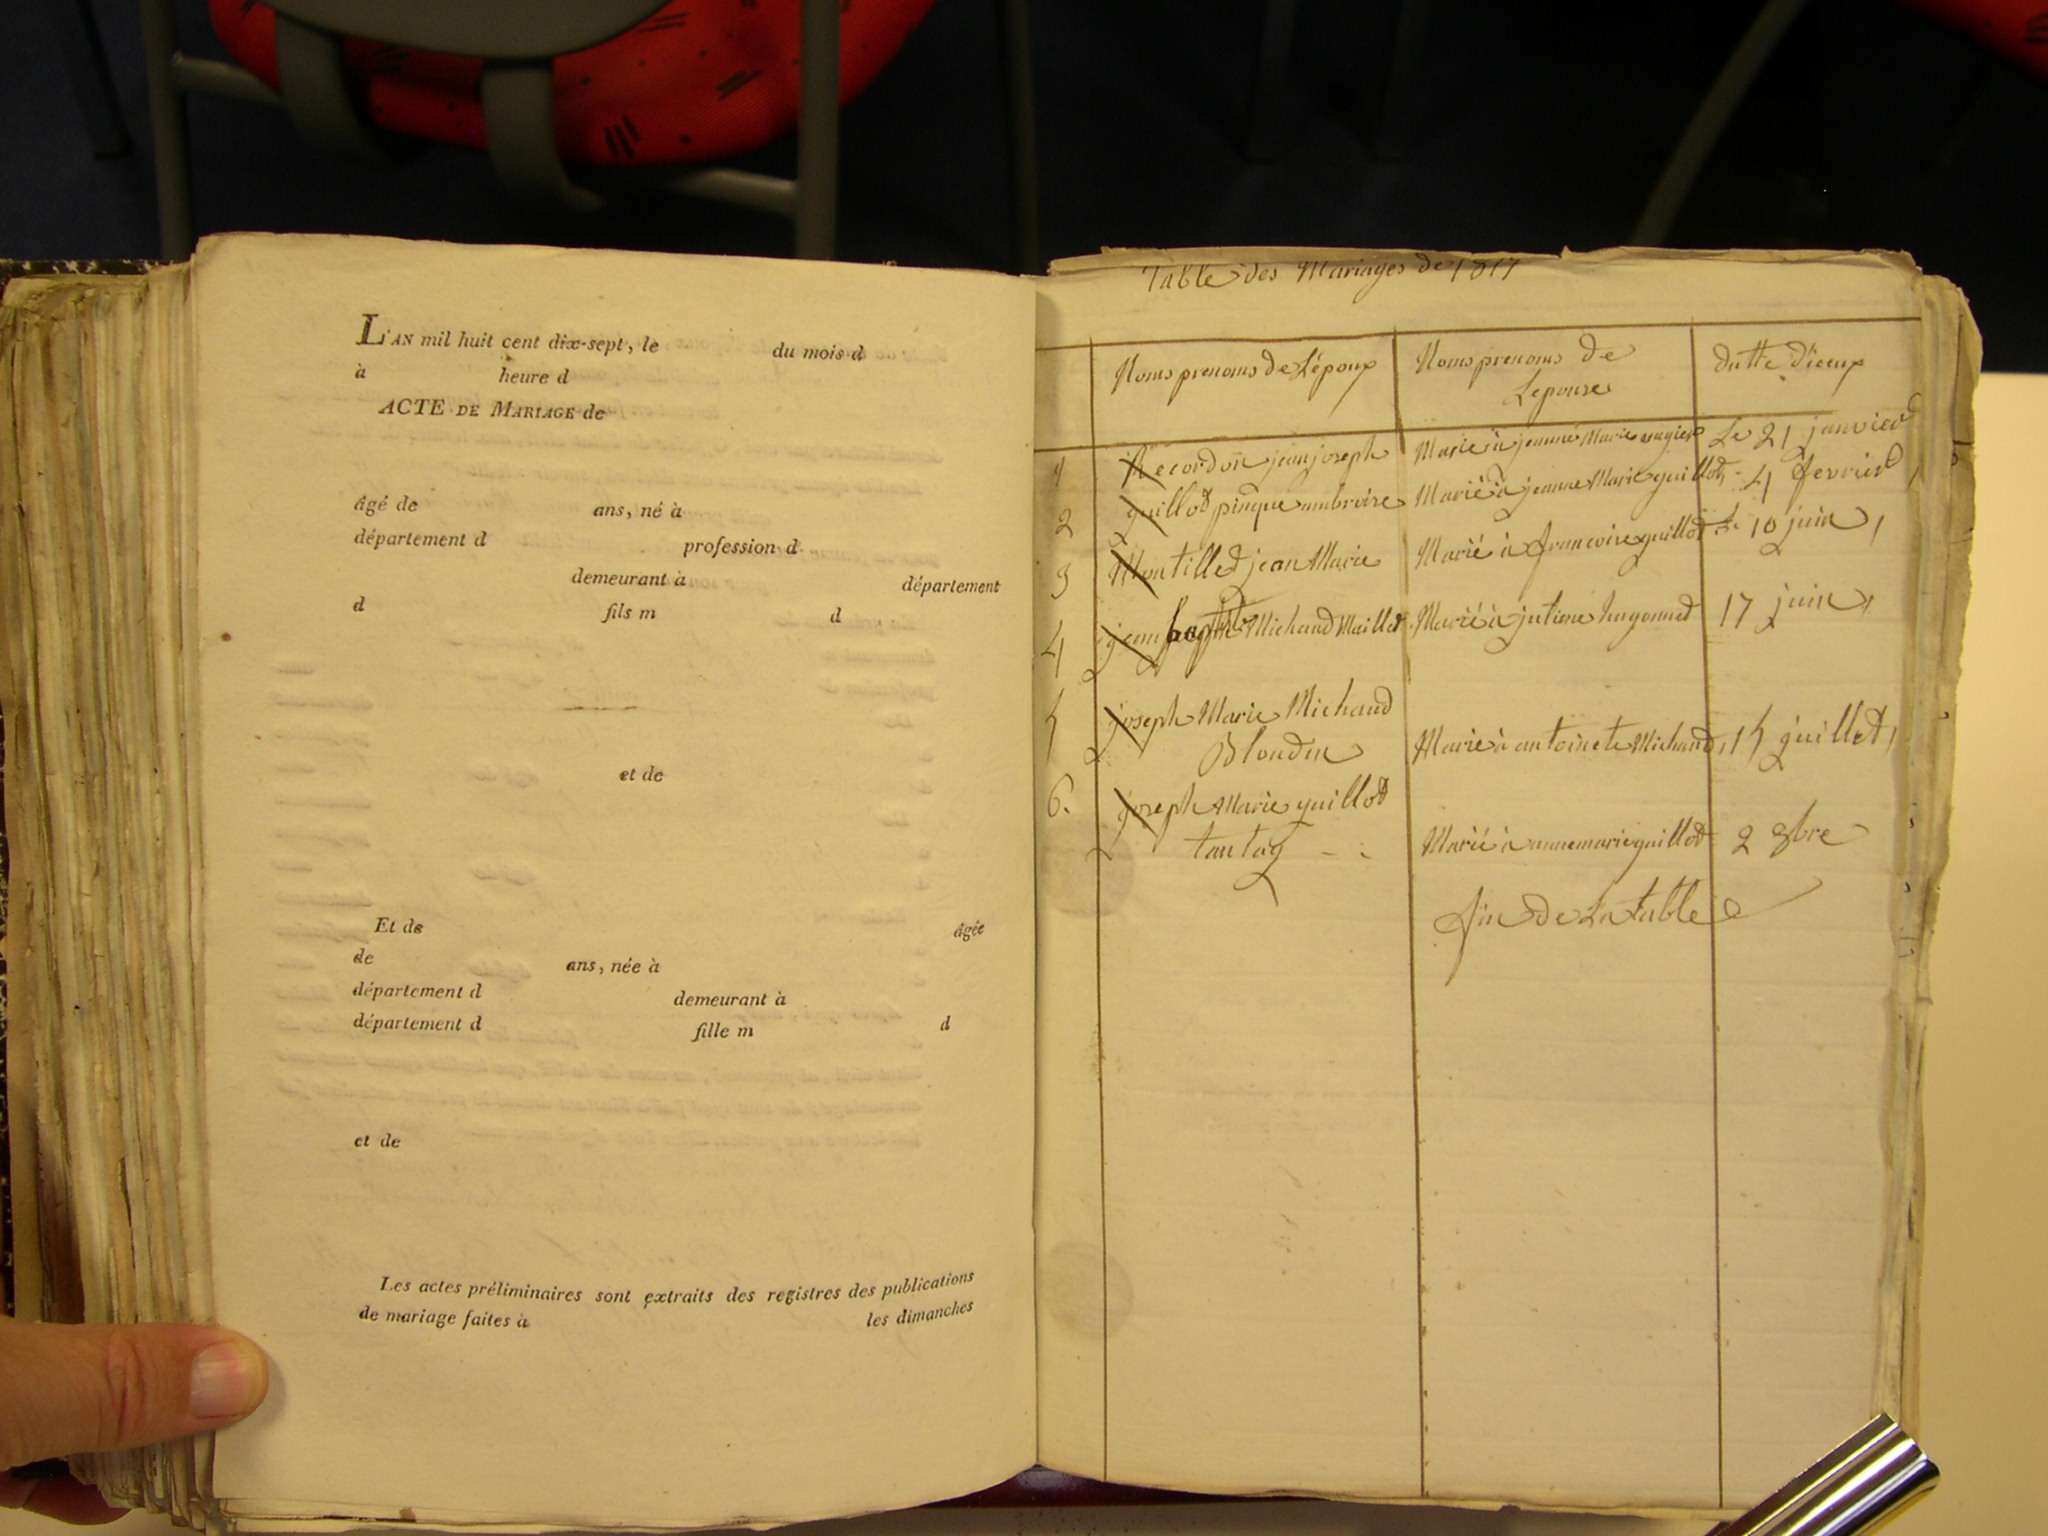 L'AN mil huit cent dix-sept, le du mois d
à heure d
ACTE DE MARIAGE de
âgé de ans, né à
département d profession d
demeurant à département
d fils m d
et de
Et de âgée
de ans, née à
département d demeurant à
département d fille m d
et de
Les actes préliminaires sont extraits des registres des publications
de mariage faites à les dimanches
Table des Mariages de 1817
Noms prenoms de L'époux Noms prenoms de Lepouse datte d'iceux
1 Recordon jean joseph Marié à jeanne Marie Le 21 janvier
2 guillot pinque ambroise Marié à jeanne Marie guillot 4 fevrier
3 Montillet jean Marie Marié à francoise guillot Le 10 juin
4 jean baptiste Michaud Maillet Marié à juliene hugonnet 17 juin
5 joseph Marie Michaud
Blondin Marié à antoinete Michaud 15 juillet
6. joseph Marie guillot
tantaz Marié à anne marie guillot 2 8bre
fin de La table